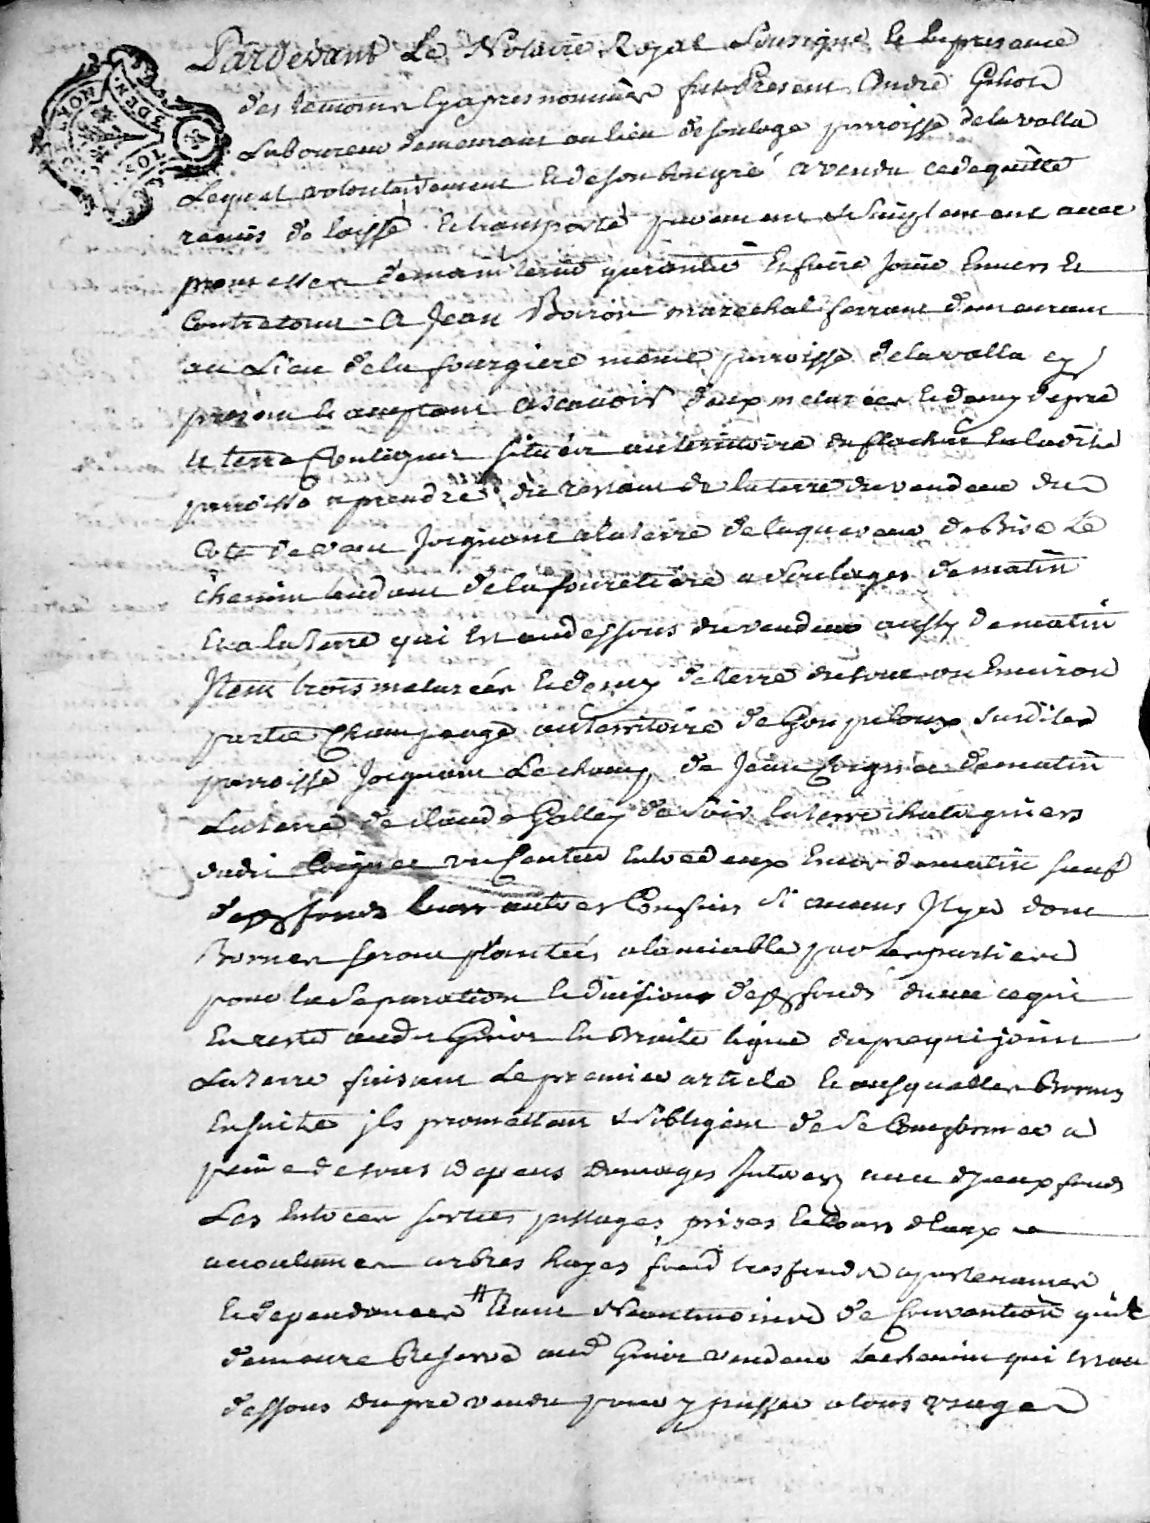 Pardevant Le Notaire Royal Sousigné et en presance
des temoins cy apres nommés fut Present André
Laboureur demeurant au lieu de soulage parroisse de lavalla
Lequel volontairement et de son bon gré a vendu cede quitté
remis de laissé et transporté purement et simplement avec
promesses de maintenir garantir et faire jouir envers et
Contre tous a Jean Boiron marechal ferrant demeurant
au Lieu de la fourgiere meme parroisse de lavalla cy
present et acceptant ascavoir deux meturées et demy de pré
et terre Contigues situées au territoire du flachat en la dite
parroisse a prendre du restant de la terre du vendeur du
Coté de vent joignant a la terre de lacquereur de Bise Le
chemin tendant de la fouretiere a Soulages de matin
Et a la terre qui est au dessous du vendeur aussy de matin
Item trois meturées et demy de terre du tout ou Environ
partie Champeage au territoire de susdite
parroisse joignant Le champ de Jean de matin
La terre de Claude Galley de Soir la terre chatagniers
dudit un Sentier entre deux de matin sauf
desd fonds leurs autres Confins Si aucuns Il y a dont
Bornes seront plantées a lamiable par les parties
pour la Separation et division desd fonds davec ce qui
En reste aud en droite ligne du pre qui joint
La terre faisant Le premier article et ausquelles Bornes
Ensuite jls promettent et sobligent de Se Conformer a
peine de tous depens Domages Interes avec d yceux fonds
Les entrées sorties passages prises et Cours deaux
accoutumés arbres hayes fond tres fonds apartenances
et dependances # Etant Neantmoins de Convention quil
demeure Reservé aud vendeur le chemin qui est au
dessous du pre vendu pour y passer a tous usages